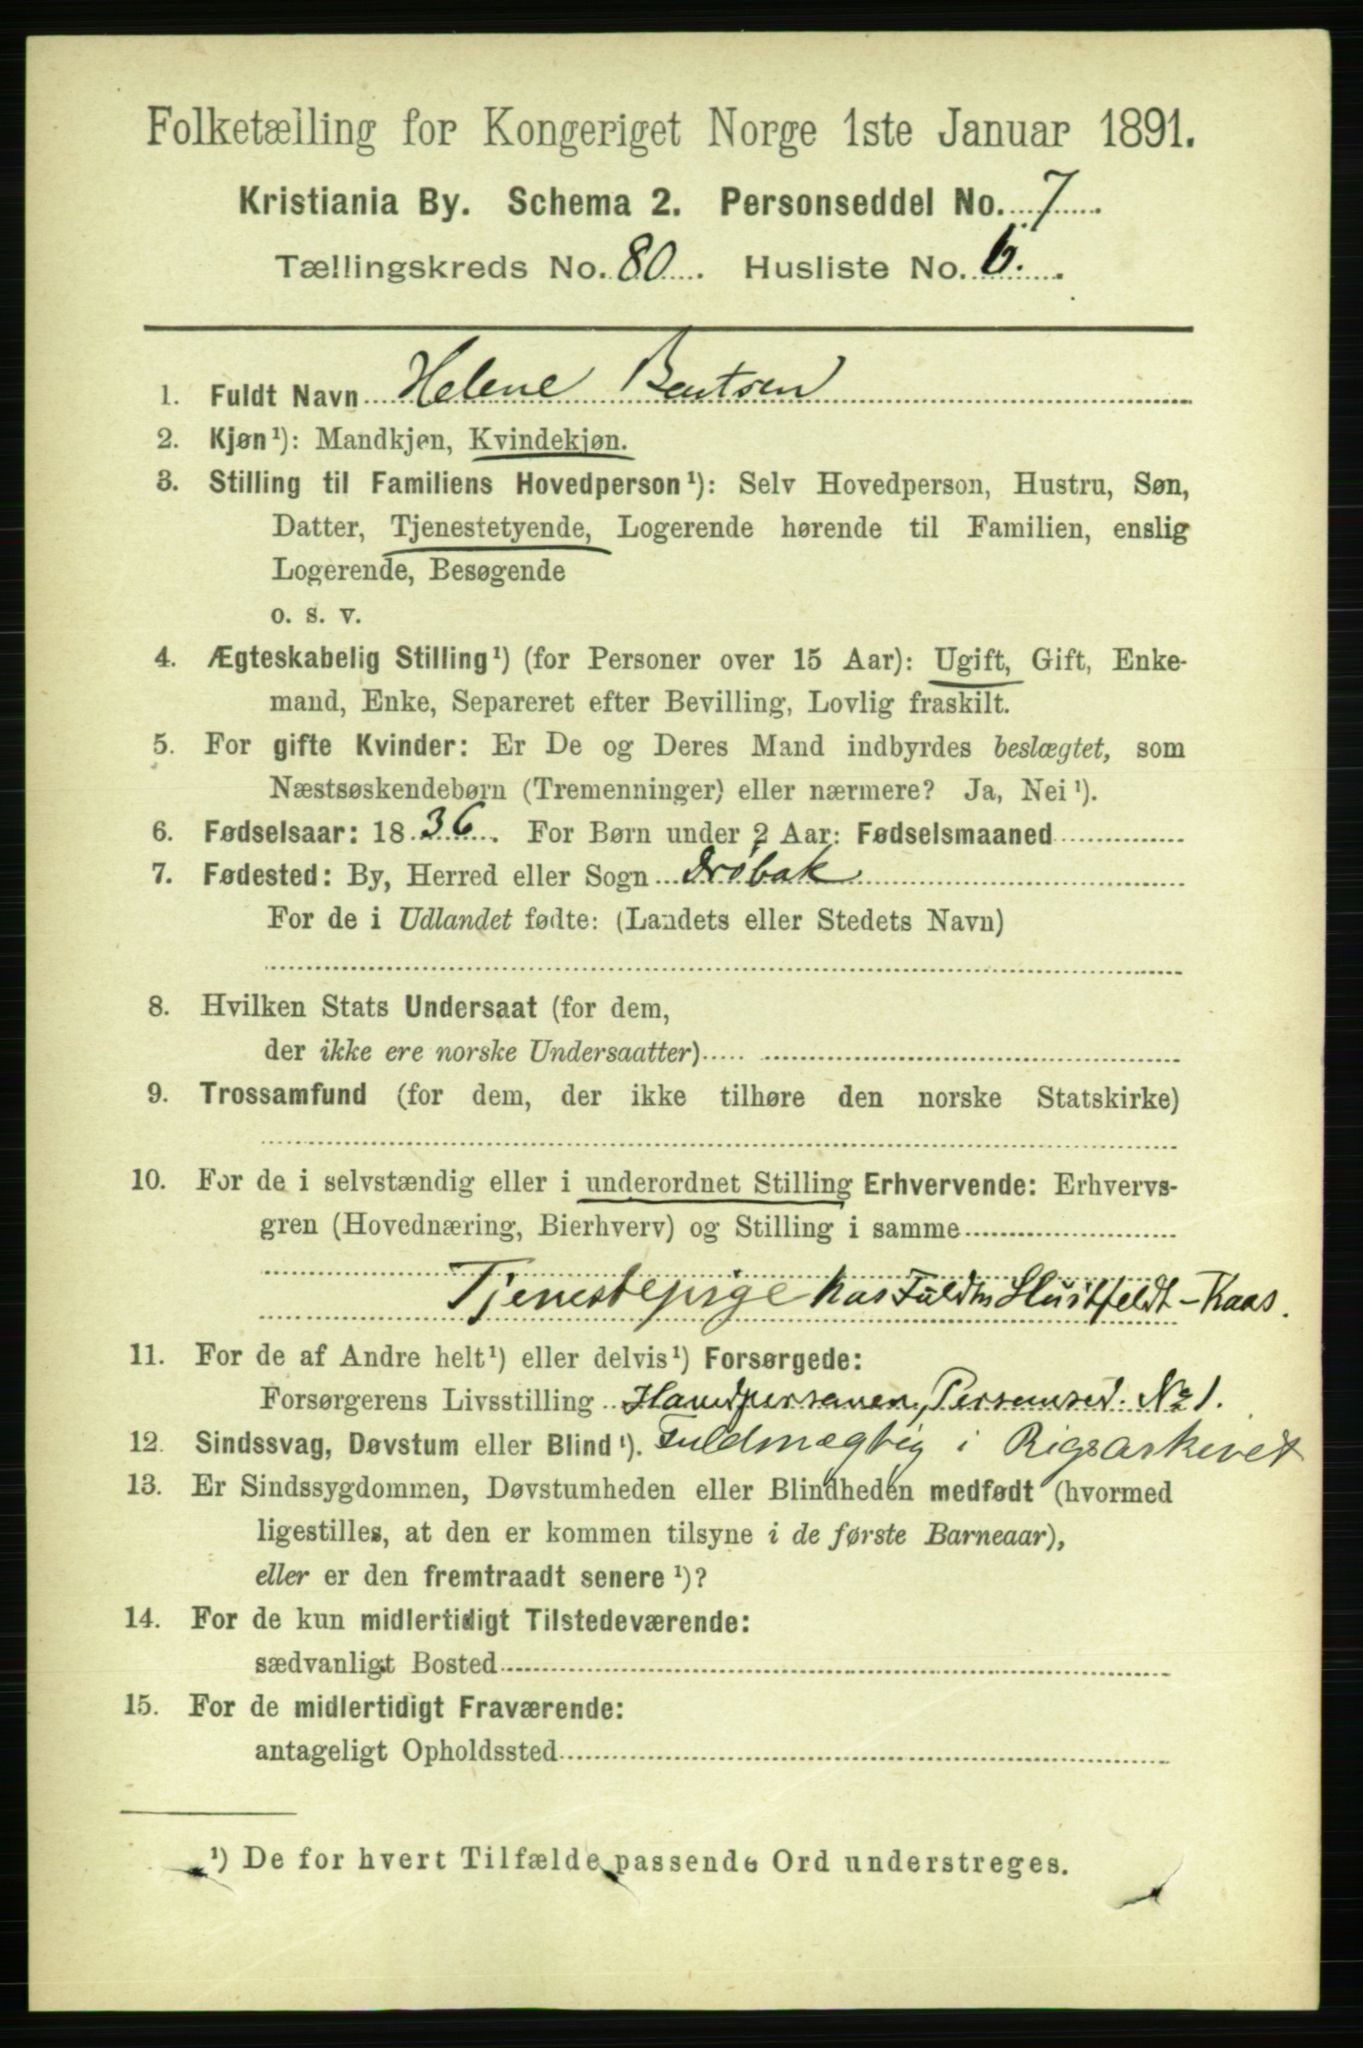 Folketælling for Kongeriget Norge 1ste Januar 1891.
Kristiania By. Schema 2. Personseddel No. 7
Tællingskreds No. 80. Husliste No. 6.
1. Fuldt Navn Helene Bentsen
2. Kjøn¹): Mandkjøn, Kvindekjøn.
3. Stilling til Familiens Hovedperson¹): Selv Hovedperson, Hustru, Søn,
Datter, Tjenestetyende, Logerende hørende til Familien, enslig
Logerende, Besøgende
o. s. v.
4. Ægteskabelig Stilling¹) (for Personer over 15 Aar): Ugift, Gift, Enke-
mand, Enke, Separeret efter Bevilling, Lovlig fraskilt.
5. For gifte Kvinder: Er De og Deres Mand indbyrdes beslægtet, som
Næstsøskendebørn (Tremenninger) eller nærmere? Ja, Nei¹).
6. Fødselsaar: 1836. For Børn under 2 Aar: Fødselsmaaned
7. Fødested: By, Herred eller Sogn Drøbak
For de i Udlandet fødte: (Landets eller Stedets Navn)
8. Hvilken Stats Undersaat (for dem,
der ikke ere norske Undersaatter)
9. Trossamfund (for dem, der ikke tilhøre den norske Statskirke)
10. For de i selvstændig eller i underordnet Stilling Erhvervende: Erhvervs-
gren (Hovednæring, Bierhverv) og Stilling i samme
Tjenestepige hos Fuldm Huitfeldt-Kaas.
11. For de af Andre helt¹) eller delvis¹) Forsørgede:
Forsørgerens Livsstilling Hovedpersonen, Personsed. No 1.
12. Sindssvag, Døvstum eller Blind¹). Fuldmægtig i Rigsarkivet
13. Er Sindssygdommen, Døvstumheden eller Blindheden medfødt (hvormed
ligestilles, at den er kommen tilsyne i de første Barneaar),
eller er den fremtraadt senere¹)?
14. For de kun midlertidigt Tilstedeværende:
sædvanligt Bosted
15. For de midlertidigt Fraværende:
antageligt Opholdssted
¹) De for hvert Tilfælde passende Ord understreges.